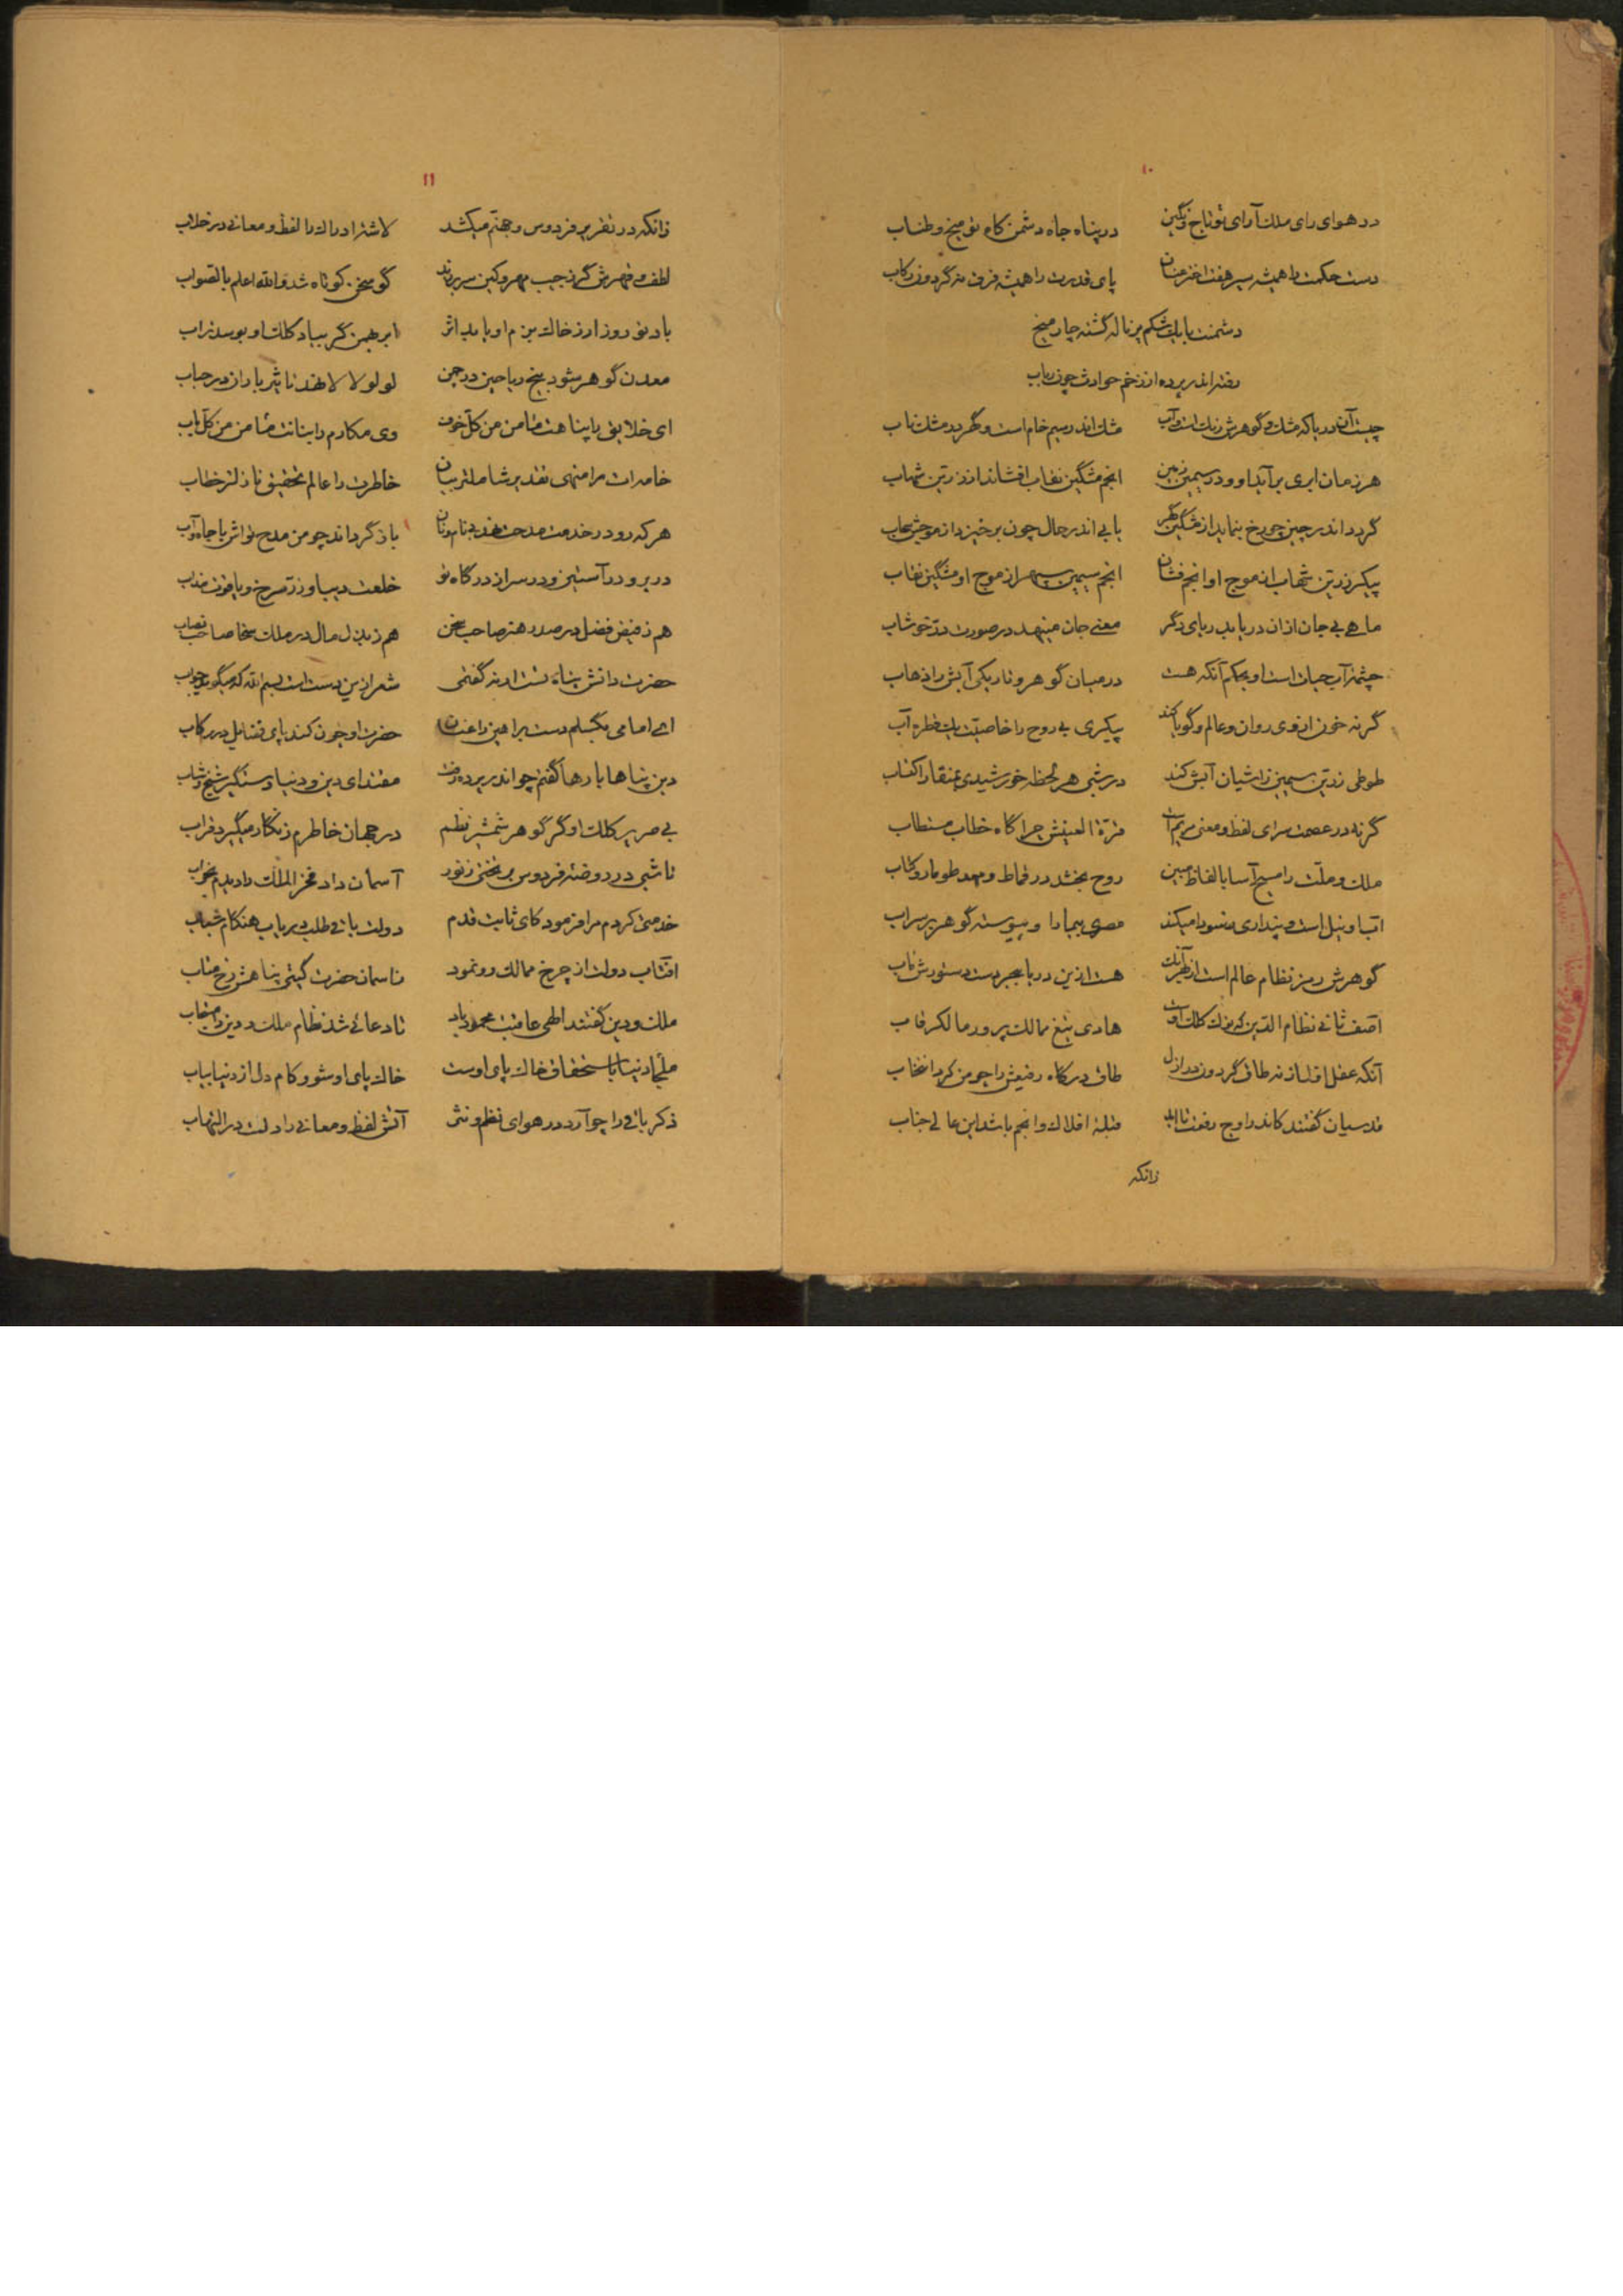 ۱۰
در هوای رای ملک آرای تو تاج و نگین در پناه جاه دشمن کاه تو میخ و طناب
دست حکمت را همیشه سیر هفت اختر عنان پای قدرت را همیشه فرق نه گردون رکاب
دشمنت با یک شکم پر ناله گشته چار میخ
رفته اندر پرده از زخم حوادث چون رباب
چیست آن دریا که مشک و گوهرش رنگ است و آب مشک اندر سیم خام است و گهر در مشک ناب
هر زمان ابری برآید او و در سیمین زمین انجم مشگین نقاب افشاند از زرین شهاب
گردد اندر چین چو رخ بنماید از مشگین گهر یابی اندر حال چون برخیزد از موجش سحاب
پیکر زرین شهاب از موج او انجم فشان انجم سیمین سپهر از موج او مشگین نقاب
ماهی بی جان از ان دریا بدریای دگر معنی جان مینهد در صورت در خوشاب
چشمه آب حیات است او بحکم آنکه هست در میان گوهر و تاریکی آبش را ذهاب
گرنه خون از وی روان و عالم و گویا کند پیکری بی روح را خاصیت یک قطره آب
طوطی زرین سیمین زاشیان آبش کند در شبی هر لحظه خورشیدی بمنقار اکتساب
گرنه در عصمت سرای لفظ و معنی مریم است قرة العینش چرا گاه خطاب مستطاب
ملک و ملت را مسیح آسا بالفاظ مبین روح بخشد در قماط و مهد طومار و کتاب
آب او نیل است و پنداری منسودا میکند مصری بیجا را و پیوسته گوهر بر سراب
گوهرش رمز نظام عالم است از بهر آنک هست ازین دریا ببحر دست دستورش مآب
آصف ثانی نظام الدین که نوک کلک اوست هادی تیغ ممالک پرور مالک رقاب
آنکه عقل اول از نه طاق گردون در ازل طاق درگاه رفیعش را چو من کرد انتخاب
قدسیان گفتند کاندر اوج رفعت تا ابد قبله افلاک و انجم باشد این عالی جناب
زانکه
۱۱
زانکه در تقریر فردوس و جهنم میکشد لاشه ادراک را لفظ و معانی در خلاب
لطف و قهرش گر ز جیب مهر و کین سر برزند گو سخن کوتاه شد والله اعلم بالصواب
باد نوروز ار ز خاک بزم او یابد اثر ابر بهمن گر بیاد کلک او بوسد تراب
معدن گوهر شود بیخ ریاحین در چمن لولو لالا نهد تاثیر باران در حباب
ای خلایق را پناهت ضامن من کل خوف وی مکارم را بنانت ضامن من کل باب
خامه ات مر منهی تقدیر شاملتر بیان خاطرت را عالم تحقیق نازلتر خطاب
هر که رود در خدمت مدحت نهد بنام و نان باز گرداند چو من مدح تواش با جاه و آب
در بر و در آستین و در سر از درگاه تو خلعت دیبا و زر سرخ و یاقوت مذاب
هم ز فیض فضل در صدر هنر صاحب سخن هم ز بذل مال در ملک سخا صاحب نصاب
حضرت دانش پناه تست ار نه گفتمی شعر ازین دست است بسم الله که میگوید جواب
ای امامی مگسلم دست براهین را عنان حضرت او چون کند پای فضایل در رکاب
دین پناها بارها گفتم چو اندر پرده رفت مقتدای دین و دنیا دستگیر شیخ و شاب
بی صریر کلک او گر گوهر شمشیر نظم در جهان خاطرم زنگار میگیرد قراب
تا شبی در روضه فردوس بر تختی ز نور آسمان داد فخر الملک را دیدم بخواب
خدمتی کردم مرا فرمود کای ثابت قدم دولت باقی طلب دریاب هنگام شباب
آفتاب دولت از چرخ ممالک رو نمود ز آسمان حضرت گیتی پناهش رخ متاب
ملک و دین گفتند الهی عاقبت محمود باد تا دعائی شد نظام ملک و دین را مستجاب
ملجأ دنیا باستحقاق خاک پای اوست خاک پای او شو و کام دل از دنیا بیاب
ذکر باقی را چو آرد در هوای نظم و نثر آتش لفظ و معانی را دلت در التهاب